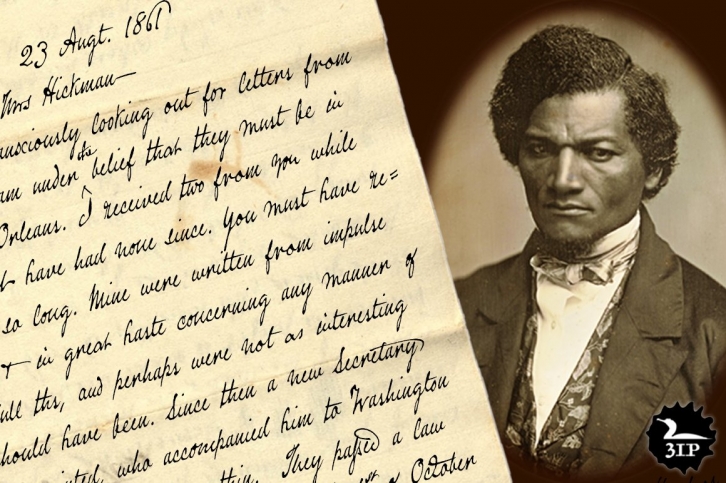 23 Augt. 1861
Mrs Hickman—
anxiously looking out for letters from
am under its belief that they must be in
Orleans. I received two from you while
have had none since. You must have re=
so long. Mine were written from impulse
+ in great haste concerning any manner of
ths, and perhaps were not as interesting
should have been. Since then a new Secretary
who accompanied him to Washington
They passed a law
October
3IP